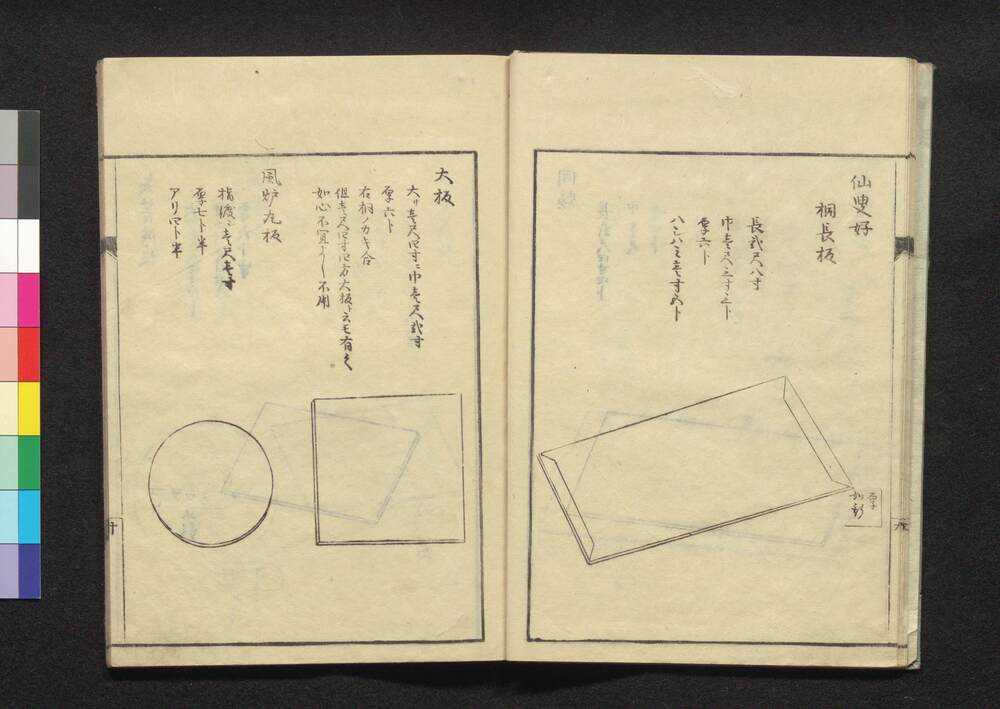 仙叟好
桐長板
長弐尺八寸
巾壱尺三寸三ト
厚六ト
ハシハミ壱寸五ト
厚
如斯
大板
大サ壱尺四寸ニ巾壱尺弐寸
厚六ト
右桐ノカキ合
但壱尺四寸四方大板ト云モ有之
如心不宜よし不用
風炉丸板
指渡シ壱尺壱寸
厚七ト半
アリ四ト半
十